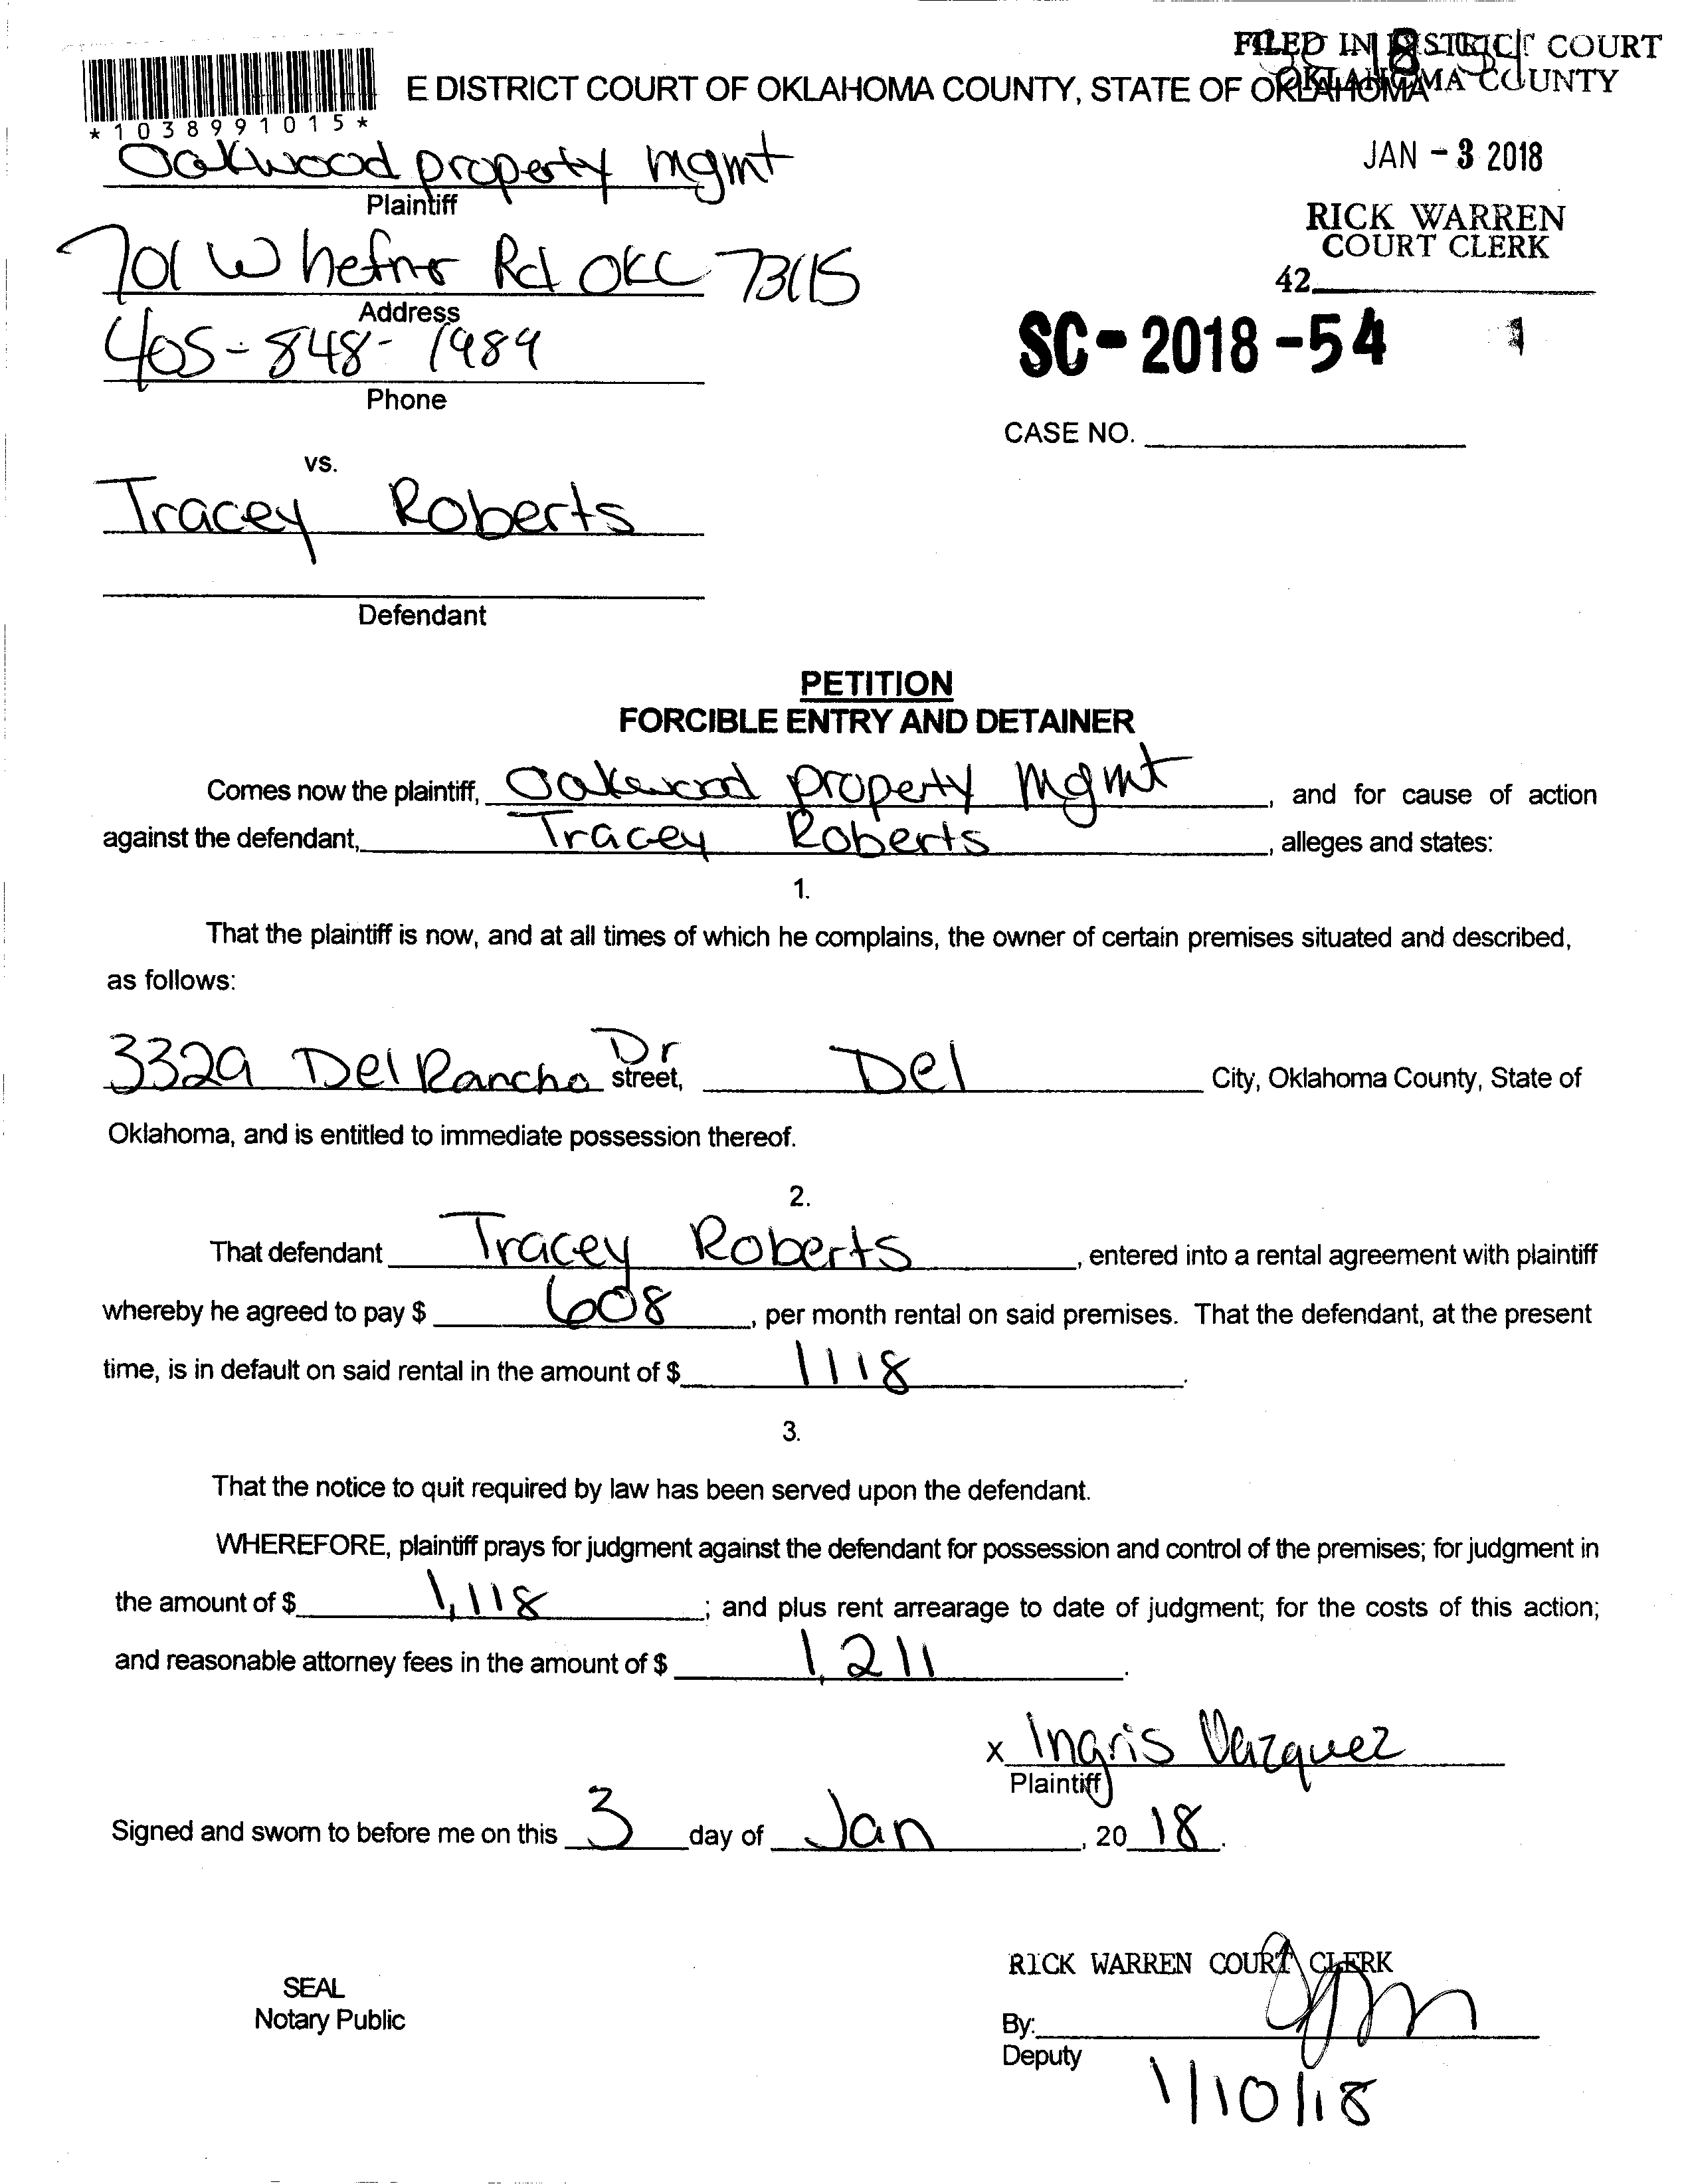 FILED IN DISTRICT COURT
OKLAHOMA COUNTY
E DISTRICT COURT OF OKLAHOMA COUNTY, STATE OF OKLAHOMA
*1038991015*
JAN - 3 2018
Oakwood property mgmt
Plaintiff
RICK WARREN
COURT CLERK
42
701 W hefner Rd OKC 73115
Address
405-848-1989
Phone
SC-2018-54
CASE NO.
vs.
Tracey Roberts
Defendant
PETITION
FORCIBLE ENTRY AND DETAINER
Comes now the plaintiff, Oakwood property Mgmt, and for cause of action
against the defendant, Tracey Roberts, alleges and states:
1.
That the plaintiff is now, and at all times of which he complains, the owner of certain premises situated and described,
as follows:
3329 Del Rancho Dr street, Del City, Oklahoma County, State of
Oklahoma, and is entitled to immediate possession thereof.
2.
That defendant Tracey Roberts, entered into a rental agreement with plaintiff
whereby he agreed to pay $ 608, per month rental on said premises. That the defendant, at the present
time, is in default on said rental in the amount of $ 1118.
3.
That the notice to quit required by law has been served upon the defendant.
WHEREFORE, plaintiff prays for judgment against the defendant for possession and control of the premises; for judgment in
the amount of $ 1,118; and plus rent arrearage to date of judgment; for the costs of this action;
and reasonable attorney fees in the amount of $ 1,211.
x Ingris Vazquez
Plaintiff
Signed and sworn to before me on this 3 day of Jan, 20 18.
RICK WARREN COURT CLERK
SEAL
Notary Public
By:
Deputy
1/10/18